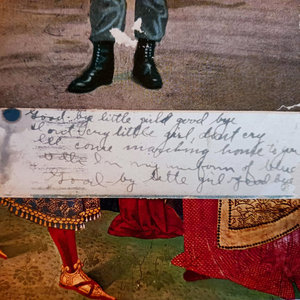 Good-bye little girl good bye
dont cry little girl, dont cry
Ill come marching home to you
In my uniform of blue
Good by little girl good bye